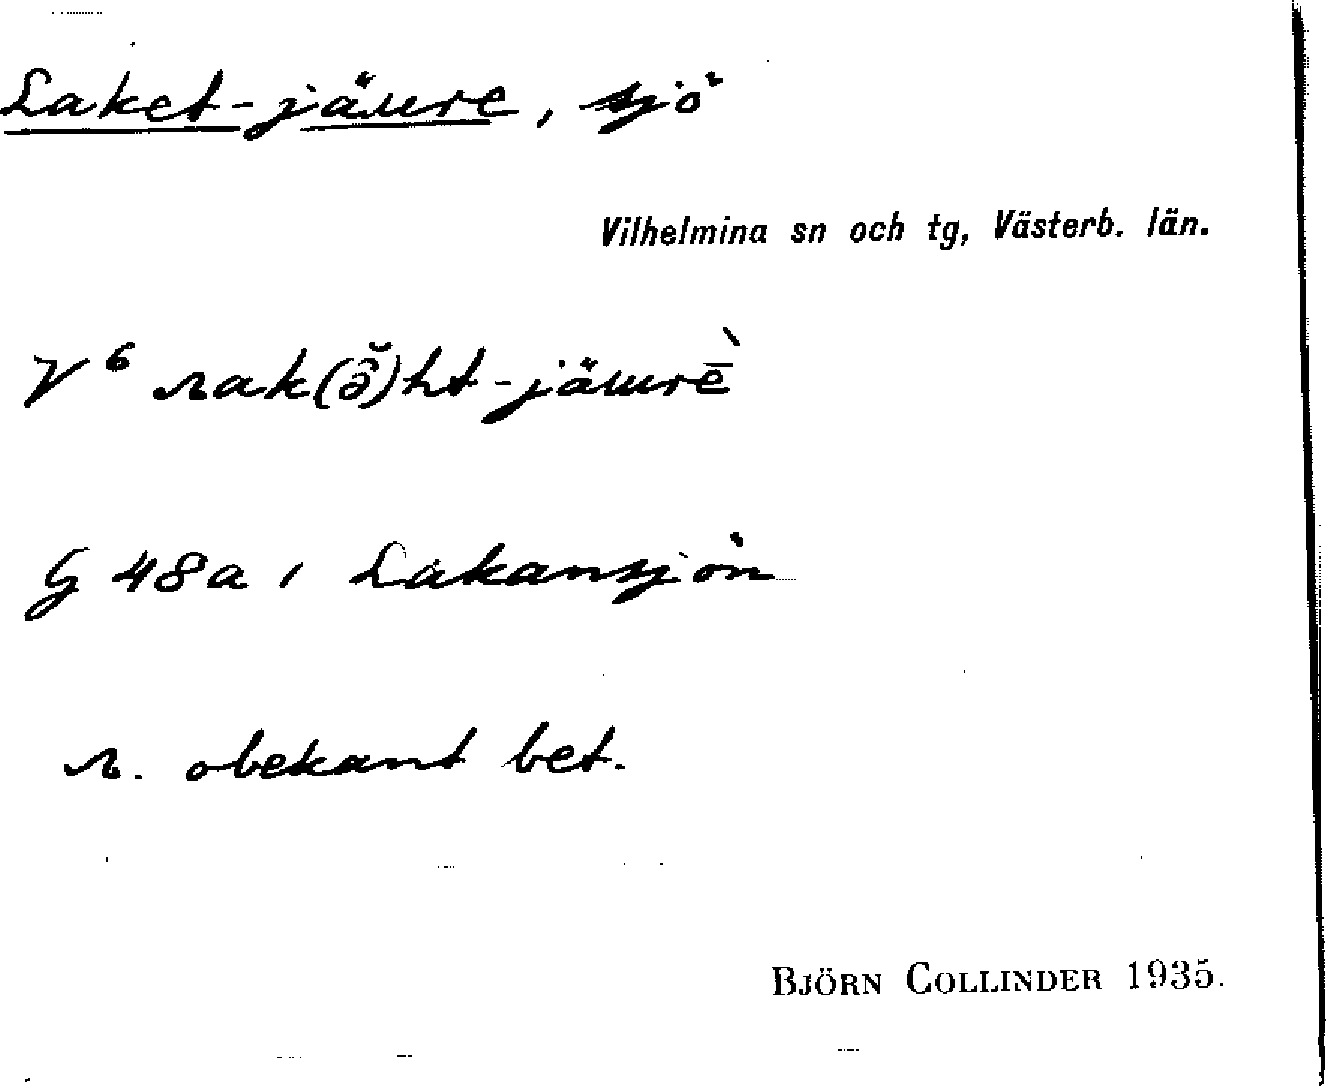 Laket-jäure, sjö
Vilhelmina sn och tg, Västerb. län.
V⁶
G 48a, Lakansjön
obekant bet.
BJÖRN COLLINDER 1935.